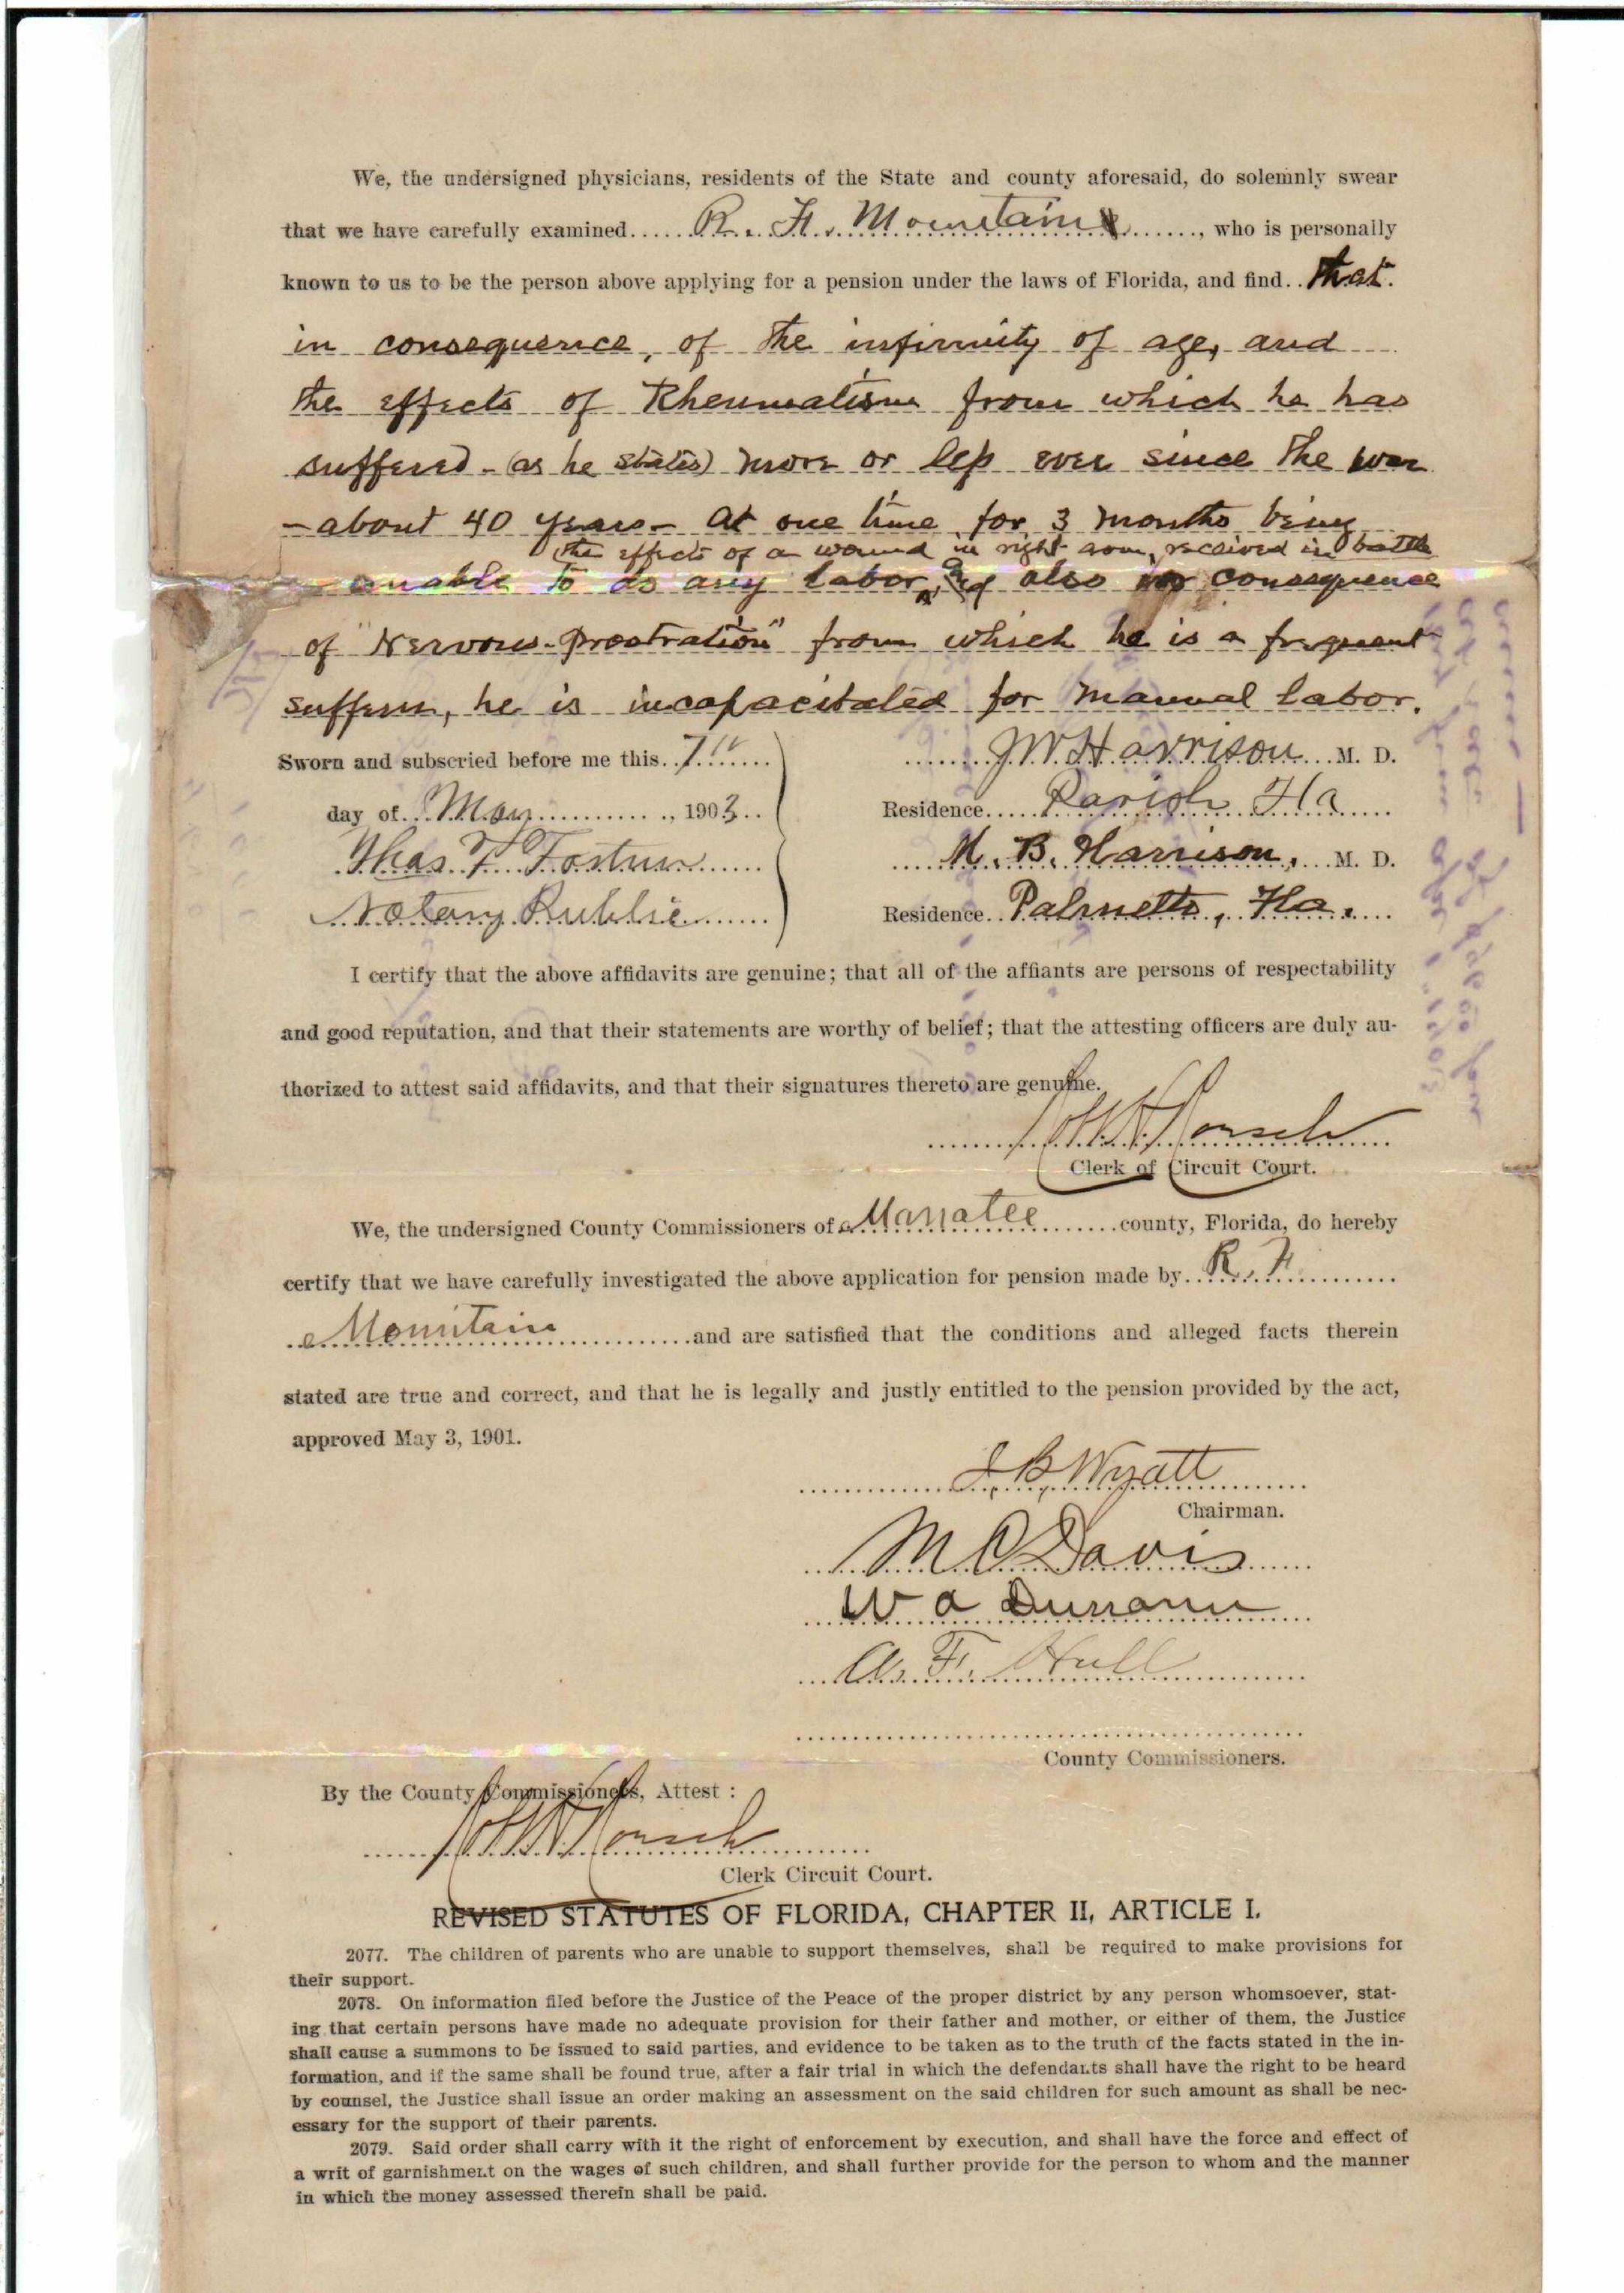 We, the undersigned physicians, residents of the State and county aforesaid, do solemnly swear
that we have carefully examined......R. H. Mountain......, who is personally
known to us to be the person above applying for a pension under the laws of Florida, and find..that
in consequence, of the infirmity of age, and
the effects of Rheumatism from which he has
suffered - (as he states) more or less ever since the war
- about 40 years - At one time for 3 months being
the effects of a wound in right arm, received in battle
unable to do any labor, and also in consequence
of "Nervous-Prostration" from which he is a frequent
sufferer, he is incapacitated for manual labor.
Sworn and subscried before me this..7th......
day of...May............., 1903..
Thos. F. Foster
Notary Public
J W Harrison M. D.
Residence.....Parish Fla
M. B. Harrison, M. D.
Residence..Palmetto, Fla.
I certify that the above affidavits are genuine; that all of the affiants are persons of respectability
and good reputation, and that their statements are worthy of belief; that the attesting officers are duly au-
thorized to attest said affidavits, and that their signatures thereto are genuine.
Clerk of Circuit Court.
We, the undersigned County Commissioners of Manatee.........county, Florida, do hereby
certify that we have carefully investigated the above application for pension made by..R. H.
Mountain..............and are satisfied that the conditions and alleged facts therein
stated are true and correct, and that he is legally and justly entitled to the pension provided by the act,
approved May 3, 1901.
J B Wyatt
Chairman.
M C Davis
W A
A. F. Hull
County Commissioners.
By the County Commissioners, Attest :
Clerk Circuit Court.
REVISED STATUTES OF FLORIDA, CHAPTER II, ARTICLE I.
2077. The children of parents who are unable to support themselves, shall be required to make provisions for
their support.
2078. On information filed before the Justice of the Peace of the proper district by any person whomsoever, stat-
ing that certain persons have made no adequate provision for their father and mother, or either of them, the Justice
shall cause a summons to be issued to said parties, and evidence to be taken as to the truth of the facts stated in the in-
formation, and if the same shall be found true, after a fair trial in which the defendants shall have the right to be heard
by counsel, the Justice shall issue an order making an assessment on the said children for such amount as shall be nec-
essary for the support of their parents.
2079. Said order shall carry with it the right of enforcement by execution, and shall have the force and effect of
a writ of garnishment on the wages of such children, and shall further provide for the person to whom and the manner
in which the money assessed therein shall be paid.